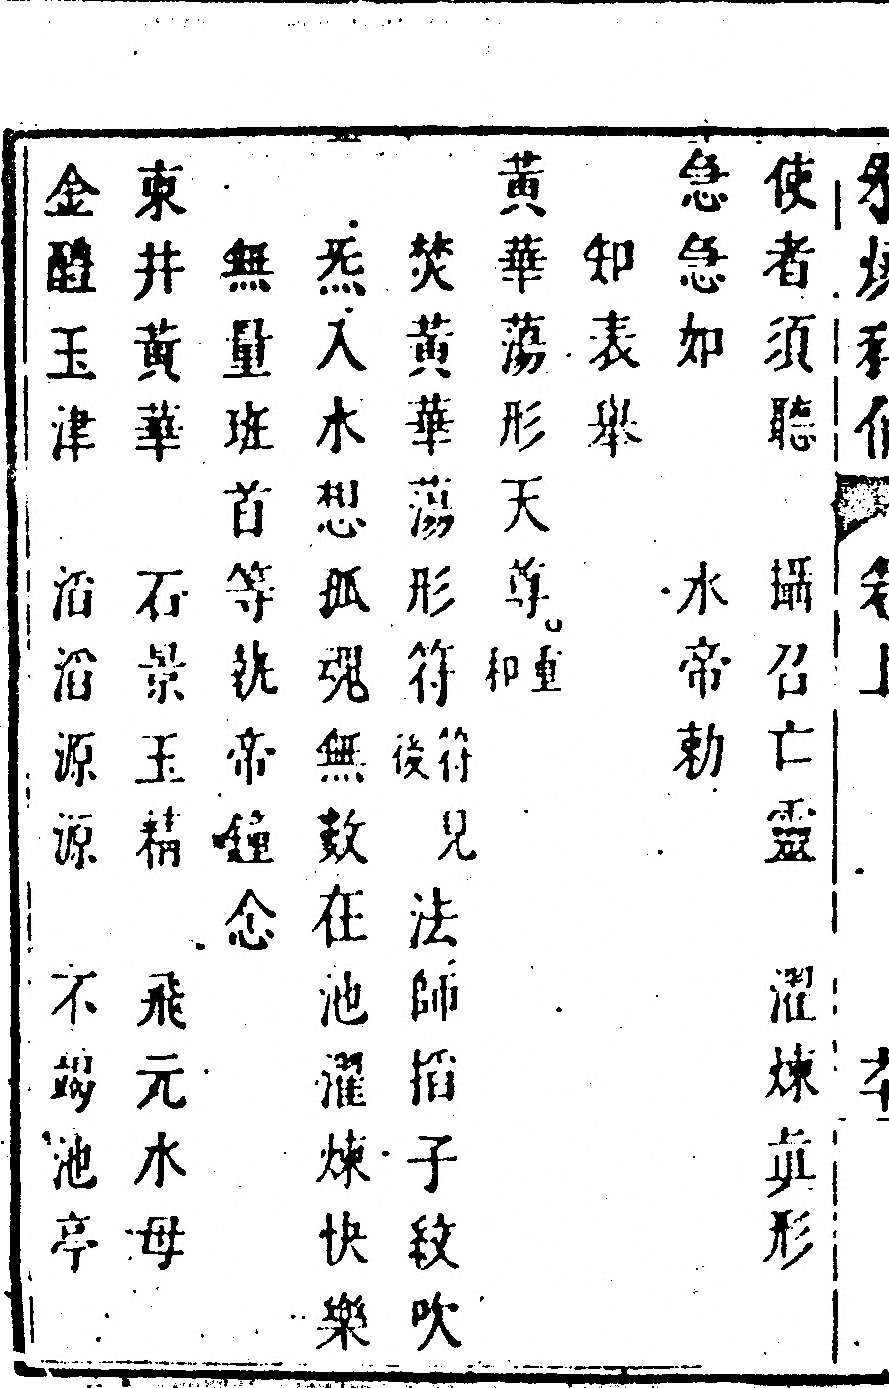 使者須聽　攝召亡靈　濯煉真形
急急如　水帝勅
知表舉
黃華蕩形天尊重和
焚黃華蕩形符符見後法師掐子紋吹
炁入水想孤魂無数在池濯煉快樂
無量班首等执帝鐘念
東井黃華　石景玉精　飛元水母
金醴玉津　滔滔源源　不竭池亭